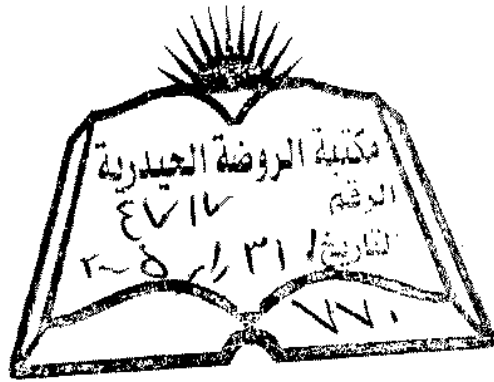 مكتبة الروضة الحيدرية
الرقم ٤٧١٧
التاريخ ٣١ / ٢٠٠٥
٧٧٠